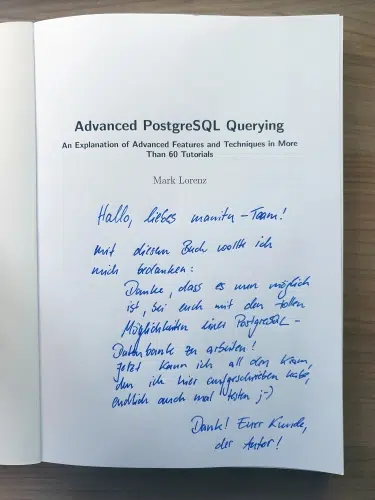 Advanced PostgreSQL Querying
An Explanation of Advanced Features and Techniques in More
Than 60 Tutorials
Mark Lorenz
Hallo, liebes manitu-Team!
mit diesem Buch wollte ich
mich bedanken:
Danke, dass es nun möglich
ist, bei euch mit den tollen
Möglichkeiten einer PostgreSQL-
Datenbank zu arbeiten!
Jetzt kann ich all den Kram,
den ich hier aufgeschrieben habe,
endlich auch mal testen ;-)
Dank! Euer Kunde,
der Autor!